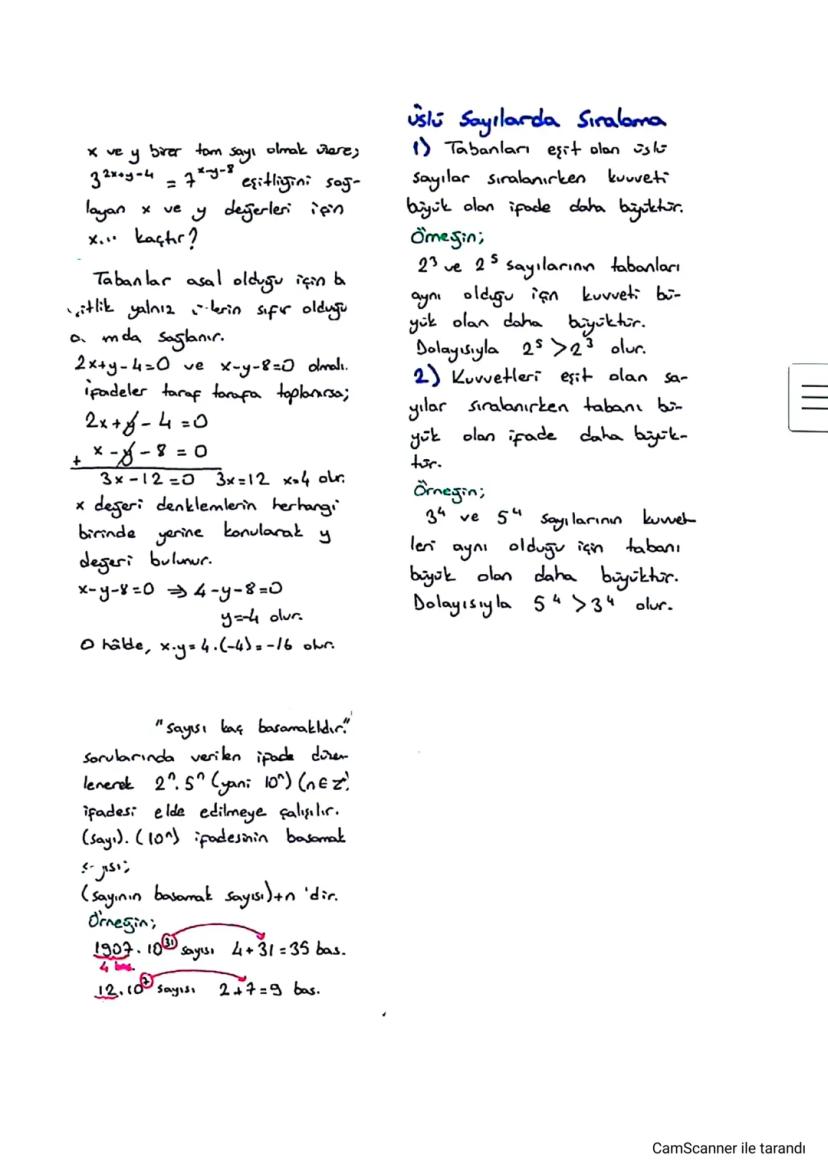 x ve y birer tam sayı olmak üzere;
3^{2x+y-4} = 7^{x-y-8} eşitliğini sağ-
layan x ve y değerleri için
x... kaçtır?
Tabanlar asal olduğu için b
itlik yalnız lerin sıfır olduğu
mda sağlanır.
2x+y-4=0 ve x-y-8=0 olmalı.
İfadeler taraf tarafa toplanırsa;
2x+y-4=0
+ x-y-8=0
3x-12=0 3x=12 x=4 olur.
x değeri denklemlerin herhangi
birinde yerine konularak y
değeri bulunur.
x-y-8=0 ⇒ 4-y-8=0
y=-4 olur.
O hâlde, x.y=4.(-4)=-16 olur.
"sayısı kaç basamaklıdır."
sorularında verilen ifade düzen-
lenerek 2^n.5^n (yani 10^n) (n∈Z
ifadesi elde edilmeye çalışılır.
(sayı).(10^n) ifadesinin basamak
s yısı;
(sayının basamak sayısı)+n 'dir.
Örneğin;
1907.10^{31} sayısı 4+31=35 bas.
4 bas.
12.10^7 sayısı 2+7=9 bas.
Üslü Sayılarda Sıralama
1) Tabanları eşit olan üslü
sayılar sıralanırken kuvveti
büyük olan ifade daha büyüktür.
Örneğin;
2^3 ve 2^5 sayılarının tabanları
aynı olduğu için kuvveti bü-
yük olan daha büyüktür.
Dolayısıyla 2^5 > 2^3 olur.
2) Kuvvetleri eşit olan sa-
yılar sıralanırken tabanı bü-
yük olan ifade daha büyük-
tür.
Örneğin;
3^4 ve 5^4 sayılarının kuvvet-
leri aynı olduğu için tabanı
büyük olan daha büyüktür.
Dolayısıyla 5^4 > 3^4 olur.
CamScanner ile tarandı